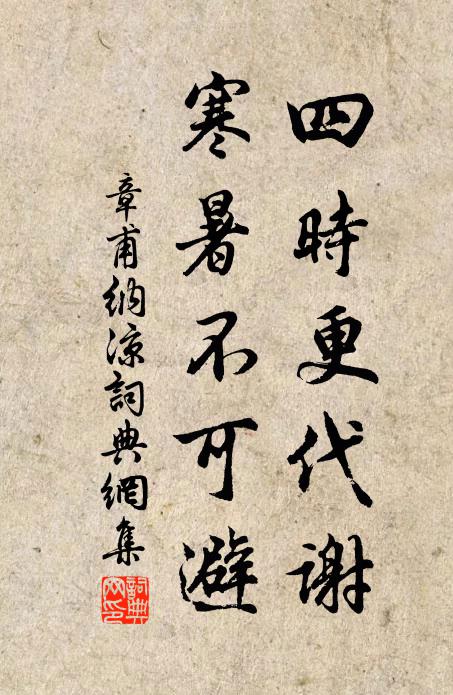 四時更代謝
寒暑不可避
章甫納涼詞典網集
詞典网印